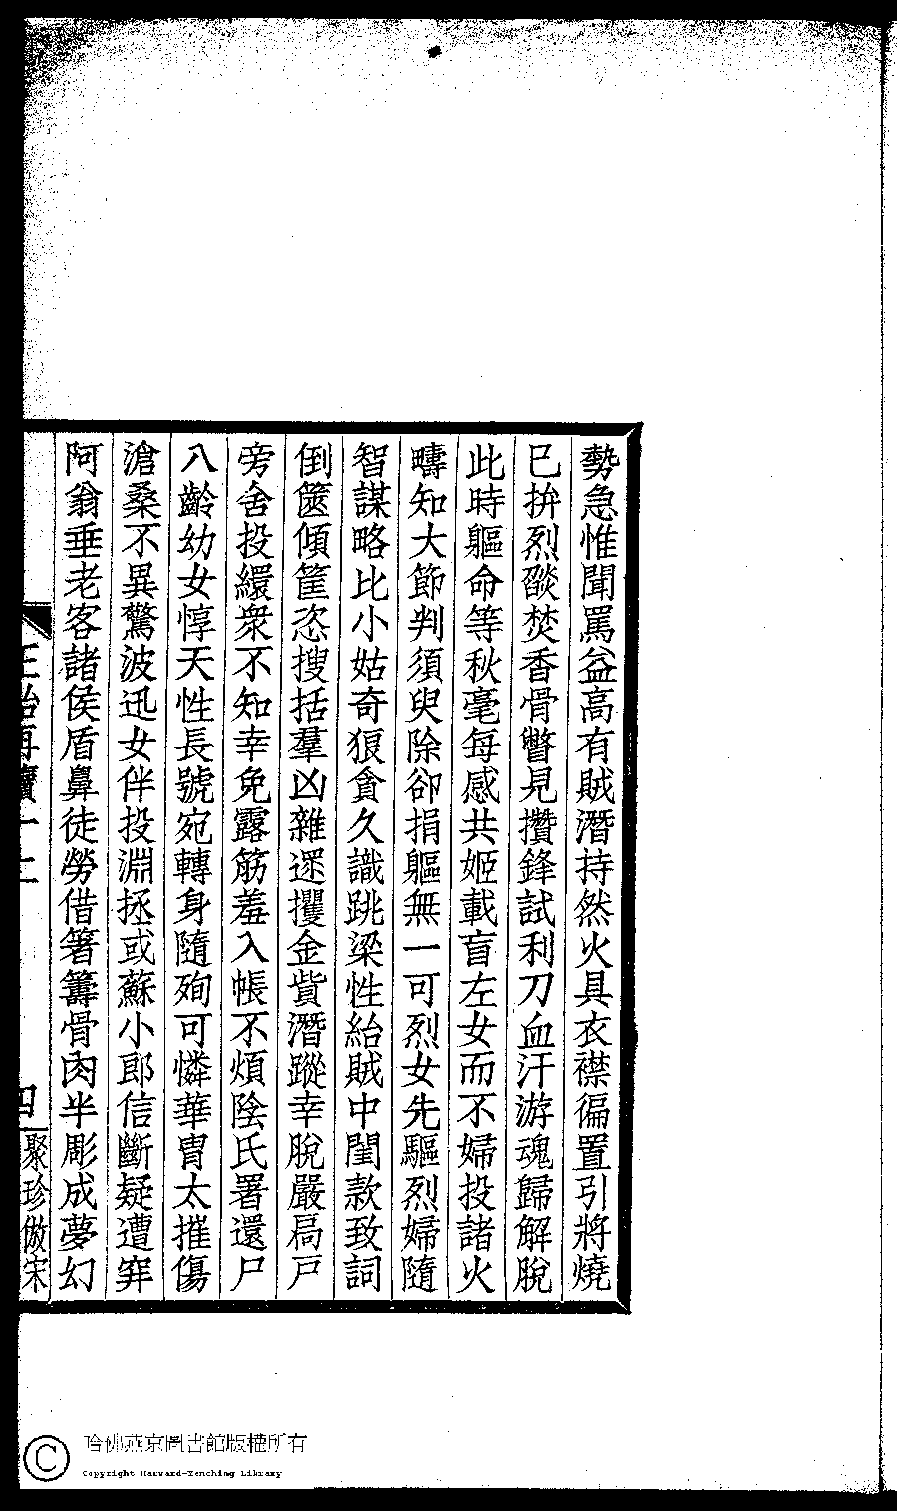 勢急惟聞罵益高有賊潛持然火具衣襟徧置引將燒
已拚烈燄焚香骨瞥見攢鋒試利刀血汗游魂歸解脫
此時軀命等秋毫每感共姬載盲左女而不婦投諸火
疇知大節判須臾除卻捐軀無一可烈女先驅烈婦隨
智謀略比小姑奇狠貪久識跳梁性紿賊中閨款致詞
倒篋傾筐恣搜括羣凶雜遝攫金貲潛蹤幸脫嚴扃戸
旁舍投繯衆不知幸免露筋羞入帳不煩陰氏署還尸
八齡幼女惇天性長號宛轉身隨殉可憐華胄太摧傷
滄桑不異驚波迅女伴投淵拯或蘇小郎信斷疑遭穽
阿翁垂老客諸侯盾鼻徒勞借箸籌骨肉半彫成夢幻
四
聚珍倣宋
哈佛燕京圖書館版權所有
Copyright Harvard-Yenching Library